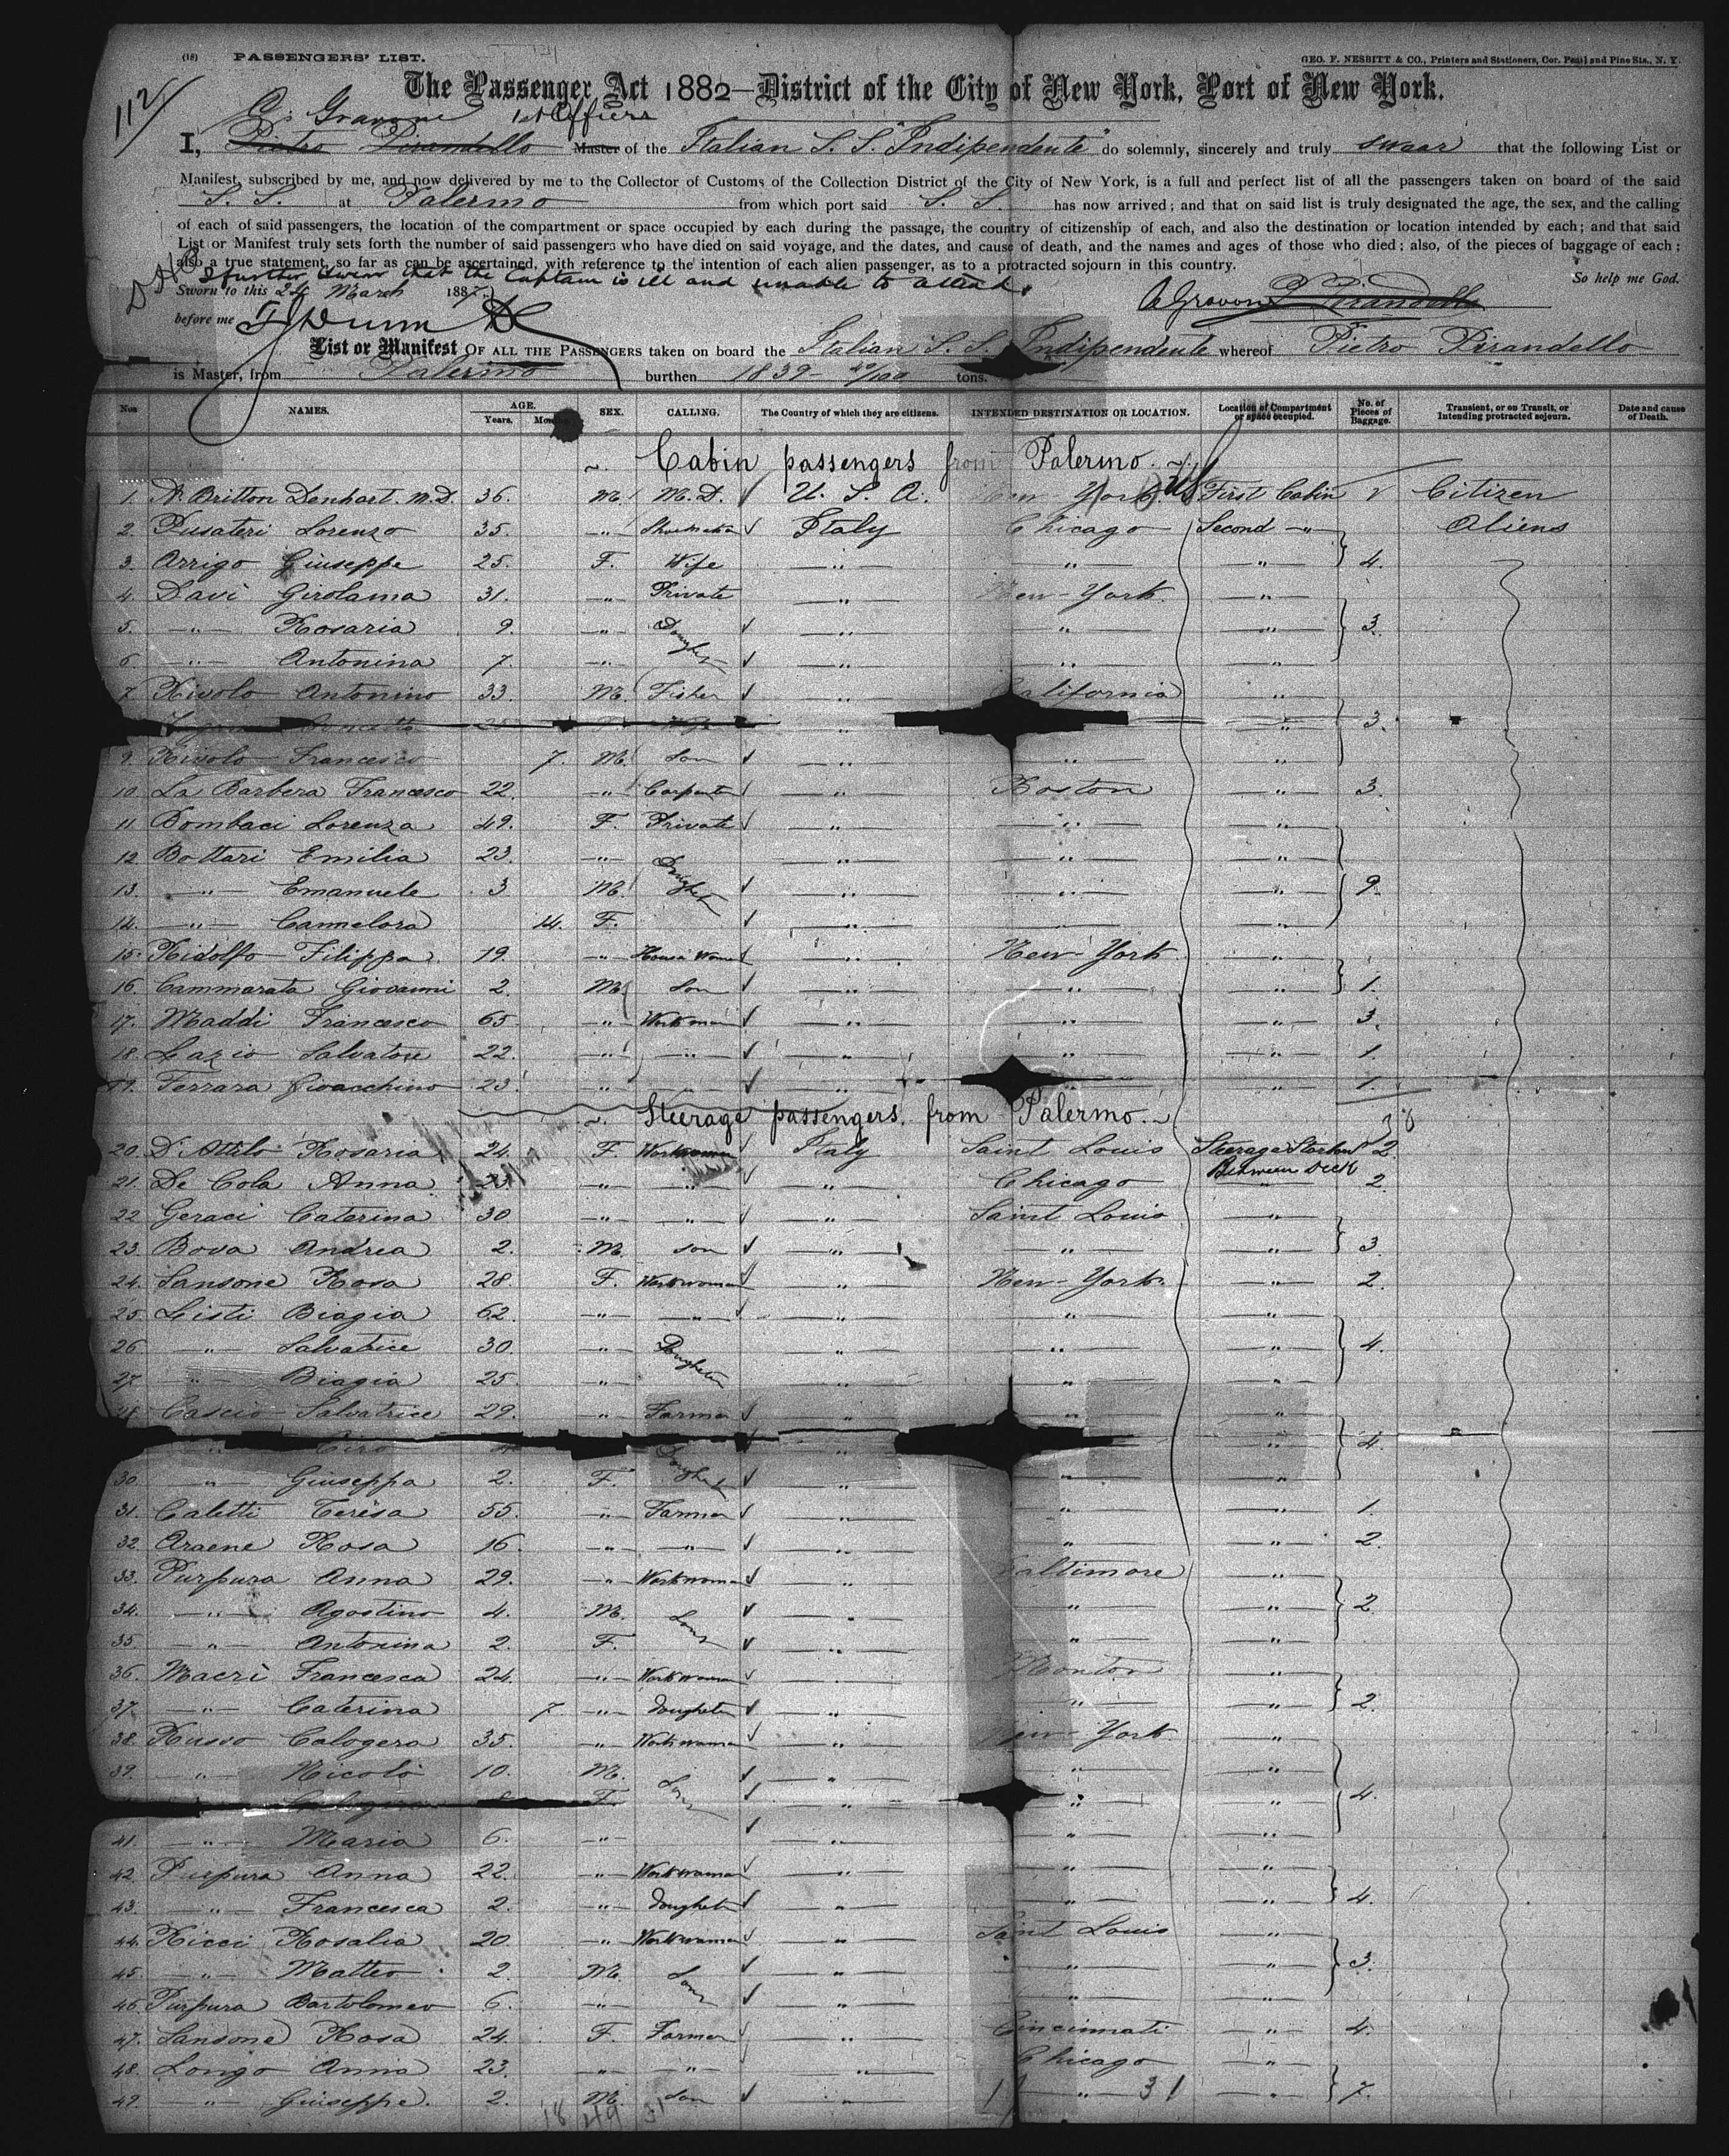 (18) PASSENGERS' LIST.
GEO. F. NESBITT & CO., Printers and Stationers, Cor. Pearl and Pine Sts., N. Y.
The Passenger Act 1882—District of the City of New York, Port of New York.
112
1st Officer
I, Pietro Pirandello Master of the Italian S. S. "Indipendente" do solemnly, sincerely and truly swear that the following List or
Manifest, subscribed by me, and now delivered by me to the Collector of Customs of the Collection District of the City of New York, is a full and perfect list of all the passengers taken on board of the said
S. S. at Palermo from which port said S. S. has now arrived; and that on said list is truly designated the age, the sex, and the calling
of each of said passengers, the location of the compartment or space occupied by each during the passage, the country of citizenship of each, and also the destination or location intended by each; and that said
List or Manifest truly sets forth the number of said passengers who have died on said voyage, and the dates, and cause of death, and the names and ages of those who died; also, of the pieces of baggage of each;
also a true statement, so far as can be ascertained, with reference to the intention of each alien passenger, as to a protracted sojourn in this country.
So help me God.
I further swear that the Captain is ill and unable to attend.
Sworn to this 24 March 1887
P. Pirandello
before me
List or Manifest OF ALL THE PASSENGERS taken on board the Italian S. S. Indipendente whereof Pietro Pirandello
is Master, from Palermo burthen 1839 - 40/100 tons.
Nos NAMES. AGE. Years. Months SEX. CALLING. The Country of which they are citizens. INTENDED DESTINATION OR LOCATION. Location of Compartment or space occupied. No. of Pieces of Baggage. Transient, or on Transit, or Intending protracted sojourn. Date and cause of Death.
Cabin passengers from Palermo.
1. A. Britton Denhart. M.D. 36. M. M.D. U. S. A. New York First Cabin Citizen
2. Pusateri Lorenzo 35. " Italy Chicago Second " Aliens
3. Arrigo Giuseppe 25. F. Wife " " " 4.
4. Davi Girolama 31. " Private " New-York "
5. " Rosaria 9. " Daughter " " " 3.
6. " Antonina 7. " " " "
7. Rivolo Antonino 33. M. Fisher " California "
" " 3.
9. Rivolo Francesco 7. M. Son " " "
10. La Barbera Francesco 22. " Carpenter " Boston " 3.
11. Bombaci Lorenza 49. F. Private " " "
12. Bottari Emilia 23. " " " "
13. " Emanuele 3 M. " " " 9.
14. " Carmelora 14. F. " " "
15. Ridolfo Filippa 19. " " New-York "
16. Cammarata Giovanni 2. M. Son " " " 1.
17. Maddi Francesco 65. " Workman " " " 3.
18. Lazio Salvatore 22. " " " " " 1.
19. Ferrara Gioacchino 23. " " " " " 1.
Steerage passengers from Palermo.
20. D'Attilo Rosaria 24. F. Workwoman Italy Saint Louis Steerage 2.
Between Deck
21. De Cola Anna 23. " " " Chicago " 2.
22 Geraci Caterina 30 " " " Saint Louis "
23. Bova Andrea 2. M. Son " " " 3.
24. Sansone Rosa 28. F. Workwoman " New-York. " 2.
25. Listi Biagia 62. " " " " "
26. " Salvatrice 30. " " " " 4.
27. " Biagia 25. " " " "
28. Cascio Salvatrice 29. " Farmer " " "
" Ciro " " 4.
30. " Giuseppa 2. F. " " "
31. Caletti Teresa 55. " Farmer " " " 1.
32. Araene Rosa 16. " " " " " 2.
33. Purpura Anna 29. " Workwoman " Baltimore "
34. " Agostino 4. M. Sons " " " 2.
35 " Antonina 2. F. " " "
36. Macri Francesca 24. " Workwoman " "
37. " Caterina 7 " Dougheter " " " 2.
38. Russo Calogera 35. " Workwoman " New-York. "
39. " Nicolò 10. M. Sons " " "
F. " " " 4.
41. " Maria 6. " " " "
42. Purpura Anna 22. " Workwoman " " "
43. " Francesca 2. " Dougheter " " " 4.
44. Ricci Rosalia 20. " Workwoman " Saint Louis "
45. " Matteo 2. M. Sons " " " 3.
46. Purpura Bartolomeo 6. " " " "
47. Sansone Rosa 24. F. Farmer " Cincinnati " 4.
48. Longo Anna 23. " " " Chicago "
49. " Giuseppe. 2. M. Son " " " 7.
18 49 31